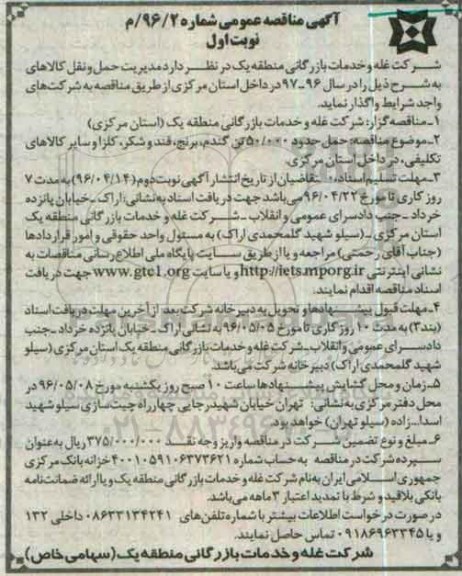 آگهی مناقصه عمومی شماره ۹۶/۲/م
نوبت اول
شرکت غله و خدمات بازرگانی منطقه یک در نظر دارد مدیریت حمل و نقل کالاهای
به شرح ذیل را در سال ۹۶-۹۷ در داخل استان مرکزی از طریق مناقصه به شرکت‌های
واجد شرایط واگذار نماید.
۱-مناقصه گزار: شرکت غله و خدمات بازرگانی منطقه یک (استان مرکزی)
۲-موضوع مناقصه: حمل حدود ۵۰/۰۰۰ تن گندم، برنج، قند و شکر، کلزا و سایر کالاهای
تکلیفی، در داخل استان مرکزی.
۳-مهلت تسلیم اسناد: متقاضیان از تاریخ انتشار آگهی نوبت دوم (۹۶/۰۴/۱۴) به مدت ۷
روز کاری تا مورخ ۹۶/۰۴/۲۲ می باشد جهت دریافت اسناد به نشانی: اراک-خیابان پانزده
خرداد-جنب دادسرای عمومی و انقلاب-شرکت غله و خدمات بازرگانی منطقه یک
استان مرکزی-(سیلو شهید گلمحمدی اراک) به مسئول واحد حقوقی و امور قراردادها
(جناب آقای رحمتی) مراجعه و یا از طریق سایت پایگاه ملی اطلاع رسانی مناقصات به
نشانی اینترنتی http://iets.mporg.ir و یا سایت www.gtc1.org جهت دریافت
اسناد مناقصه اقدام نمایند.
۴-مهلت قبول پیشنهادها و تحویل به دبیرخانه شرکت بعد از آخرین مهلت دریافت اسناد
(بند۳) به مدت ۱۰ روز کاری تا مورخ ۹۶/۰۵/۰۵ به نشانی اراک-خیابان پانزده خرداد-جنب
دادسرای عمومی و انقلاب-شرکت غله و خدمات بازرگانی منطقه یک استان مرکزی (سیلو
شهید گلمحمدی اراک) دبیرخانه شرکت می باشد.
۵-زمان و محل گشایش پیشنهادها ساعت ۱۰ صبح روز یکشنبه مورخ ۹۶/۰۵/۰۸ در
محل دفتر مرکزی به نشانی: تهران خیابان شهید رجایی چهارراه چیت سازی سیلو شهید
اسدا... زاده (سیلو تهران) خواهد بود.
۶-مبلغ و نوع تضمین شرکت در مناقصه واریز وجه نقد ۳۷۵/۰۰۰/۰۰۰ ریال به عنوان
سپرده شرکت در مناقصه به حساب شماره ۴۰۰۱۰۵۹۱۰۶۳۷۳۶۲۱ خزانه بانک مرکزی
جمهوری اسلامی ایران به نام شرکت غله و خدمات بازرگانی منطقه یک و یا ارائه ضمانت نامه
بانکی بلاقید و شرط با تمدید اعتبار ۳ ماهه می باشد.
در صورت درخواست اطلاعات بیشتر با شماره تلفن های ۰۸۶۳۳۱۳۴۲۴۱ داخلی ۱۳۲
و یا ۰۹۱۸۶۹۶۳۳۴۵ تماس حاصل نمایند.
شرکت غله و خدمات بازرگانی منطقه یک (سهامی خاص)